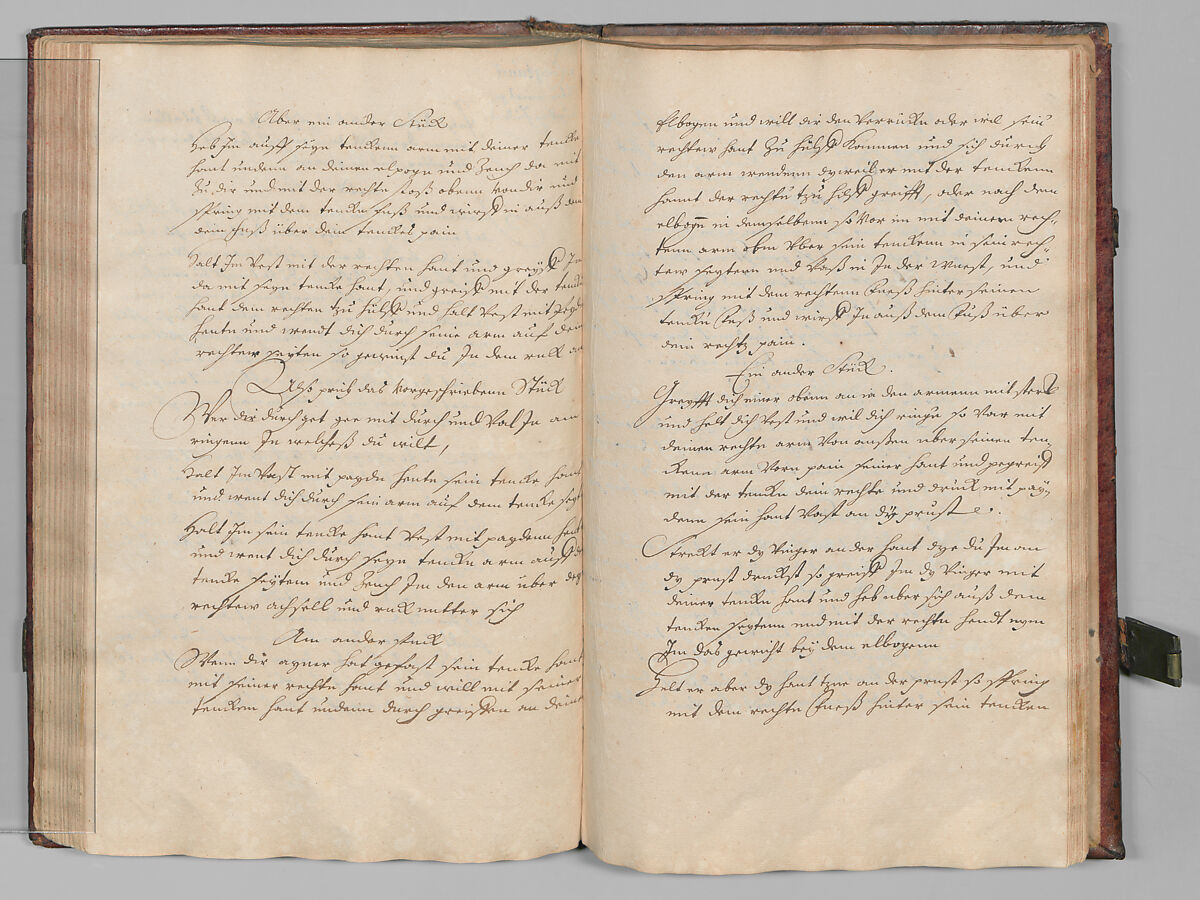 Aber ein ander Stück
Heb Jm auff seyn tencken arm mit deiner tencke
hant undenn an deinen elpogn und Zeuch da mit
zu dir und mit der rechte stoß obenn von dir und
spring mit dem tencke fuß und wirff in auß dem
dein fuß über dein tenckes pain
Halt Im vest mit der rechten hant und greyff Jm
da mit seyn tencke hant, und greiff mit der tencke
hant dem rechten tzu hülff und halt vest mit
hente und wendt dich durch seine arm auf dem
rechten seyten so gewinst du Jm den ruck an
Also prich das vorgeschriebenn Stück
Wer dir durchget gee mit durch und val Jn am
ringenn In welcheß du wilt,
Halt Im vast mit payden hente sein tencke hant
und went dich durch sein arm auf dem tencke seyt
Halt Im sein tencke hant vest mit paydenn hent
und went dich durch seyn tencke arm auff der
tencke seytenn und Zeuch Im den arm über dey
rechten achsell und ruck untter sich
Am ander stuck
Wenn dir ayner hat gefast sein tencke hant
mit seiner rechte hant und will mit seiner
tencken hant undenn durch greiffen an deinen
elbogen und will dir den verrücken oder wil sein
rechten hant zu hülff kommen und sich durch
den arm wendenn dyweil er mit der tenckenn
hannt der rechten tzu hilff greifft, oder nach dem
elbogen in demselbenn so var im mit deinem rech-
tenn arm oben über sein tenckenn in sein rech-
ten seytenn und vaß in In der Wuest, und
spring mit den rechtenn Fueß hinter seinen
tencken Fueß und wirff In auß dem Fuß über
dein rechtz pain.
Ein ander Stück.
Greyfft dich einer obenn an in den armenn mit sterck
und helt dich vest und wil dich ringen so var mit
deinen rechte arm von außen über seinen ten-
ckenn arm vorn pain seiner hant und begreiff
mit der tencke dein rechte und druck mit pay-
denn sein hant vast an dye prust.
Streckt er dy vinger an der hant dye du Im an
dy prust druckst so greiff Im dy vinger mit
deiner tencke hant und heb uber sich auß dem
tencken seytenn und mit der rechte hendt nym
Im das gewicht bey dem elbogenn
Helt er aber dy hant tzue an der prust so spring
mit dem rechte Fueß hinter sein tencken